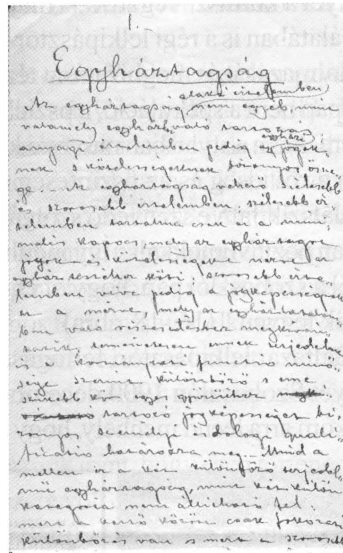 1.
Egyháztagság
alaki értelemben
Az egyháztagság nem egyéb, mint
valamely egyházhoz való tartozás,
anyagi értelemben pedig egyházi jogok-
nak s kötelességeknek bizonyos össze-
ge. Az egyháztagság lehető szélesebb
és szorosabb értelemben, szélesebb ér-
telemben tartalma csak az a mini-
mális kapocs, mely az egyháztagot
jogok és kötelességek
egyház testéhez köti, szorosabb érte-
lemben véve pedig a jogképességnek
az a mérve, mely az
ban való részvételhez megkíván-
tatik, természetesen ennek terjedelme
is a kormányzati formák minő-
sége szerint különböző s eme
szűkebb kör egyes
tartozó jogképességet bi-
zonyos személyi s dologi quali-
ficatio határozza meg. Mind a
mellett ez a két különböző terjedel-
mű egyháztagság, mint két külön
kategoria nem állítható fel,
mert a kettő között csak fokozati
különbözés van s mert a szorosabb